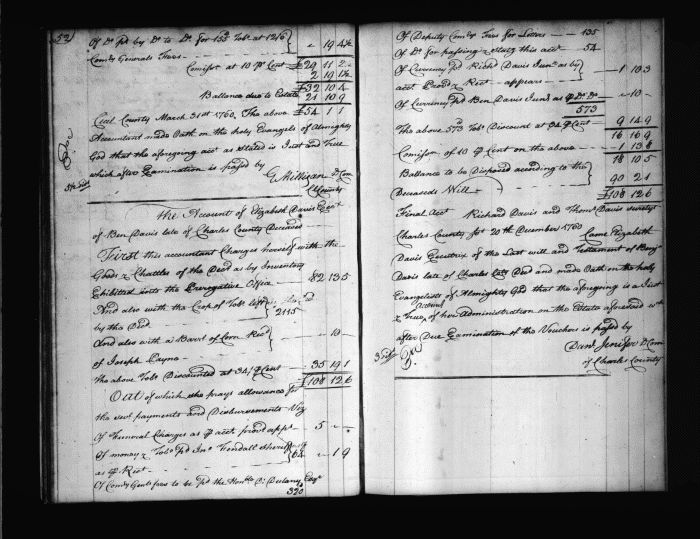 52
Of Do pd by Do to Do for 155 Tobo at 12/6 " 19 4½
Comys Generals Fees
Comisss at 10 ⅌ Cent £29 11 2
2 19 1½
£32 10 4
Ballance due to Estate 21 10 9
£54 1 1
Cecil County March 31st 1760. The above
Accountant made Oath on the holy Evangels of Almighty
God that the aforegoing acct as stated is Just and True
which after Examination is passed by
G Milligan D Com
Cl County
The Account of Elizabeth Davis Exx
of Ben Davis late of Charles County Deceased
First this accountant Charges herself with the
Goods & Chattles of the Deced as by Inventory
Exhibited into the Prerogative Office 82 13 5
And also with the Crop of Tobo
by the Deced 2115
And also with a Barrel of Corn Recd " 10 "
of Joseph Payne
the above Tobo Discounted at 34/ ⅌ Cent 35 19 1
£108 12 6
Oat of which she prays allowance for
the sevl payments and Disbursements Viz
Of Funeral Charges as ⅌ acct provd appr 5 " "
Of money & Tobo pd Jno Tendall Sheriff
as ⅌ Rect 64 " 1 9
Of Comys Genls fees to be pd the Honble D: Dulany Esqr
320
Of Deputy Comys Fees for Letters 135
Of Do for passing & stating this acct 54
Of Currency pd Richd Davis Junr as by
acct Provd & Rect appears 1 10 3
Of Currency pd Ben Davis Junr as ⅌ Do Do " 10 "
573
The above 573 Tobo Discount at 34 ⅌ Cent 9 14 9
16 16 9
Comisss of 10 ⅌ Cent on the above 1 13 8
18 10 5
Ballance to be Disposed according to the
Deceaseds Will 90 2 1
£108 12 6
Final Acct Richard Davis and Thoms Davis suretys
Charles County sst 20th December 1760 Came Elizabeth
Davis Executrx of the Last will and Testament of Benj
Davis late of Charles Coty Deced and made Oath on the holy
Evangelists of Almighty God that the aforegoing is a Just
& True account of her Administration on the Estate aforesaid wch
after Due Examination of the Vouchers is passed by
Danl Jenifer D Com
of Charles County